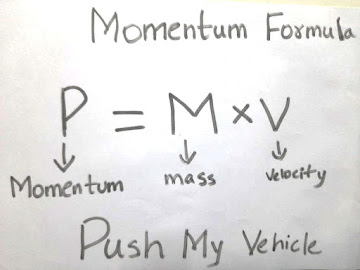 Momentum Formula
P = M × V
↓ ↓ ↓
Momentum mass velocity
Push My Vehicle